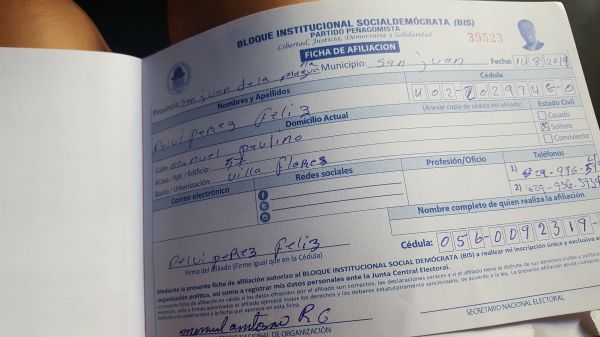 BLOQUE INSTITUCIONAL SOCIALDEMÓCRATA (BIS)
PARTIDO PEÑAGOMISTA
Libertad, Justicia, Democracia y Solidaridad
39523
FICHA DE AFILIACION
Provincia: San juan de la maguana Municipio: San juan Fecha: 14/8/2019
Nombres y Apellidos
Cédula
Delvi perez feliz
402-
(Anexar copia de cédula del afiliado)
Domicilio Actual
Estado Civil
Calle: Manuel Paulino
Casado
#Casa / Apt. / Edificio: 57
Soltero
Barrio / Urbanización: Villa flores
Conviviente
Correo electrónico
Redes sociales
Profesión/Oficio
Teléfonos
1) 829-996-
2) 829-936-
Nombre completo de quien realiza la afiliación
Delvi perez feliz
Cédula: 056-0092319-
Firma del afiliado (Firme igual que en la Cédula)
Mediante la presente ficha de afiliación autorizo al BLOQUE INSTITUCIONAL SOCIALDEMÓCRATA (BIS) a realizar mi inscripción única y exclusiva en
organización política, así como a registrar mis datos personales ante la Junta Central Electoral.
SECRETARIO NACIONAL DE ORGANIZACIÓN
SECRETARIO NACIONAL ELECTORAL